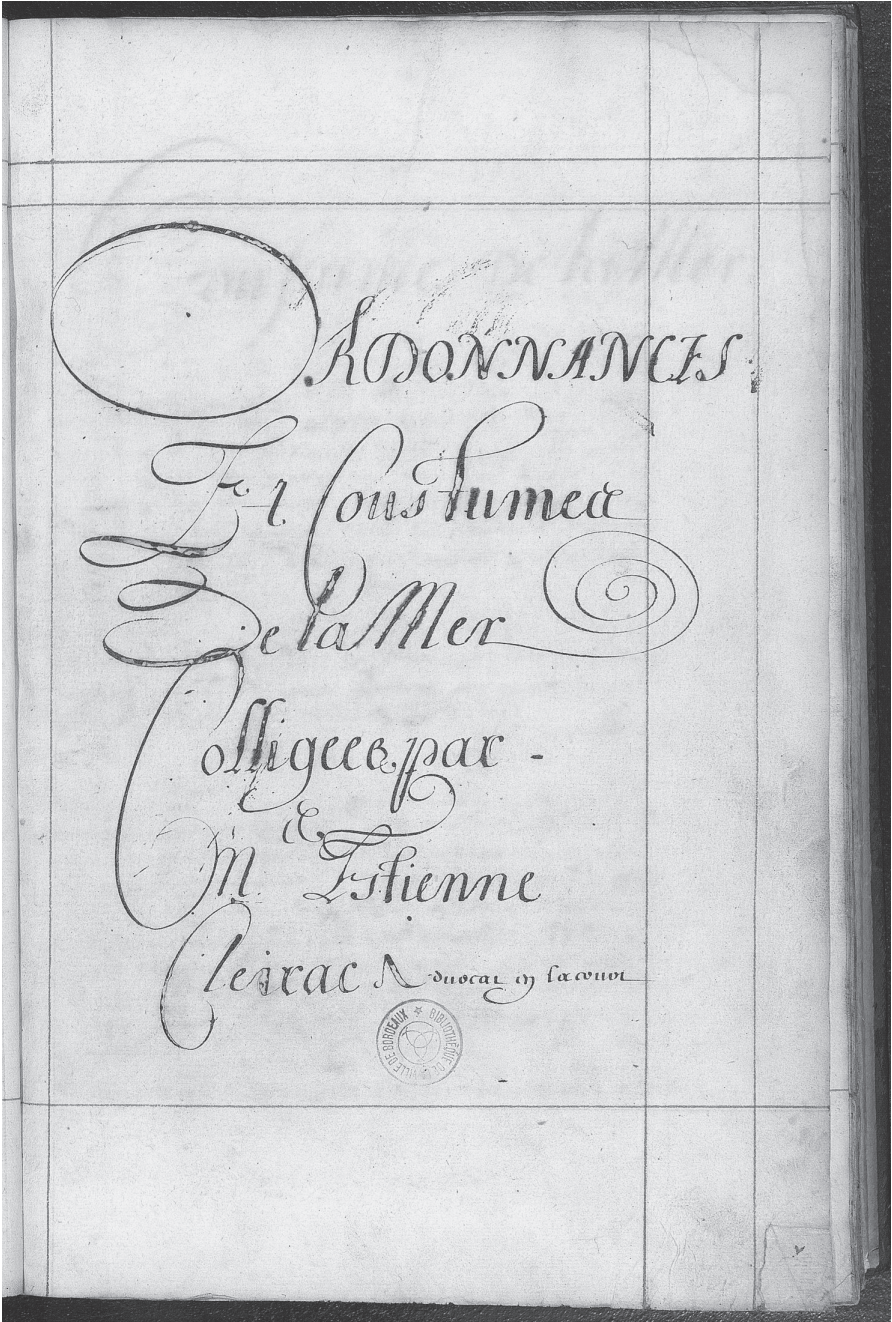 ORDONNANCES
Et Coustumes
De la Mer
Colligees par -
Me Estienne
Cleirac Advocat en la cour
BIBLIOTHÈQUE DE LA VILLE DE BORDEAUX